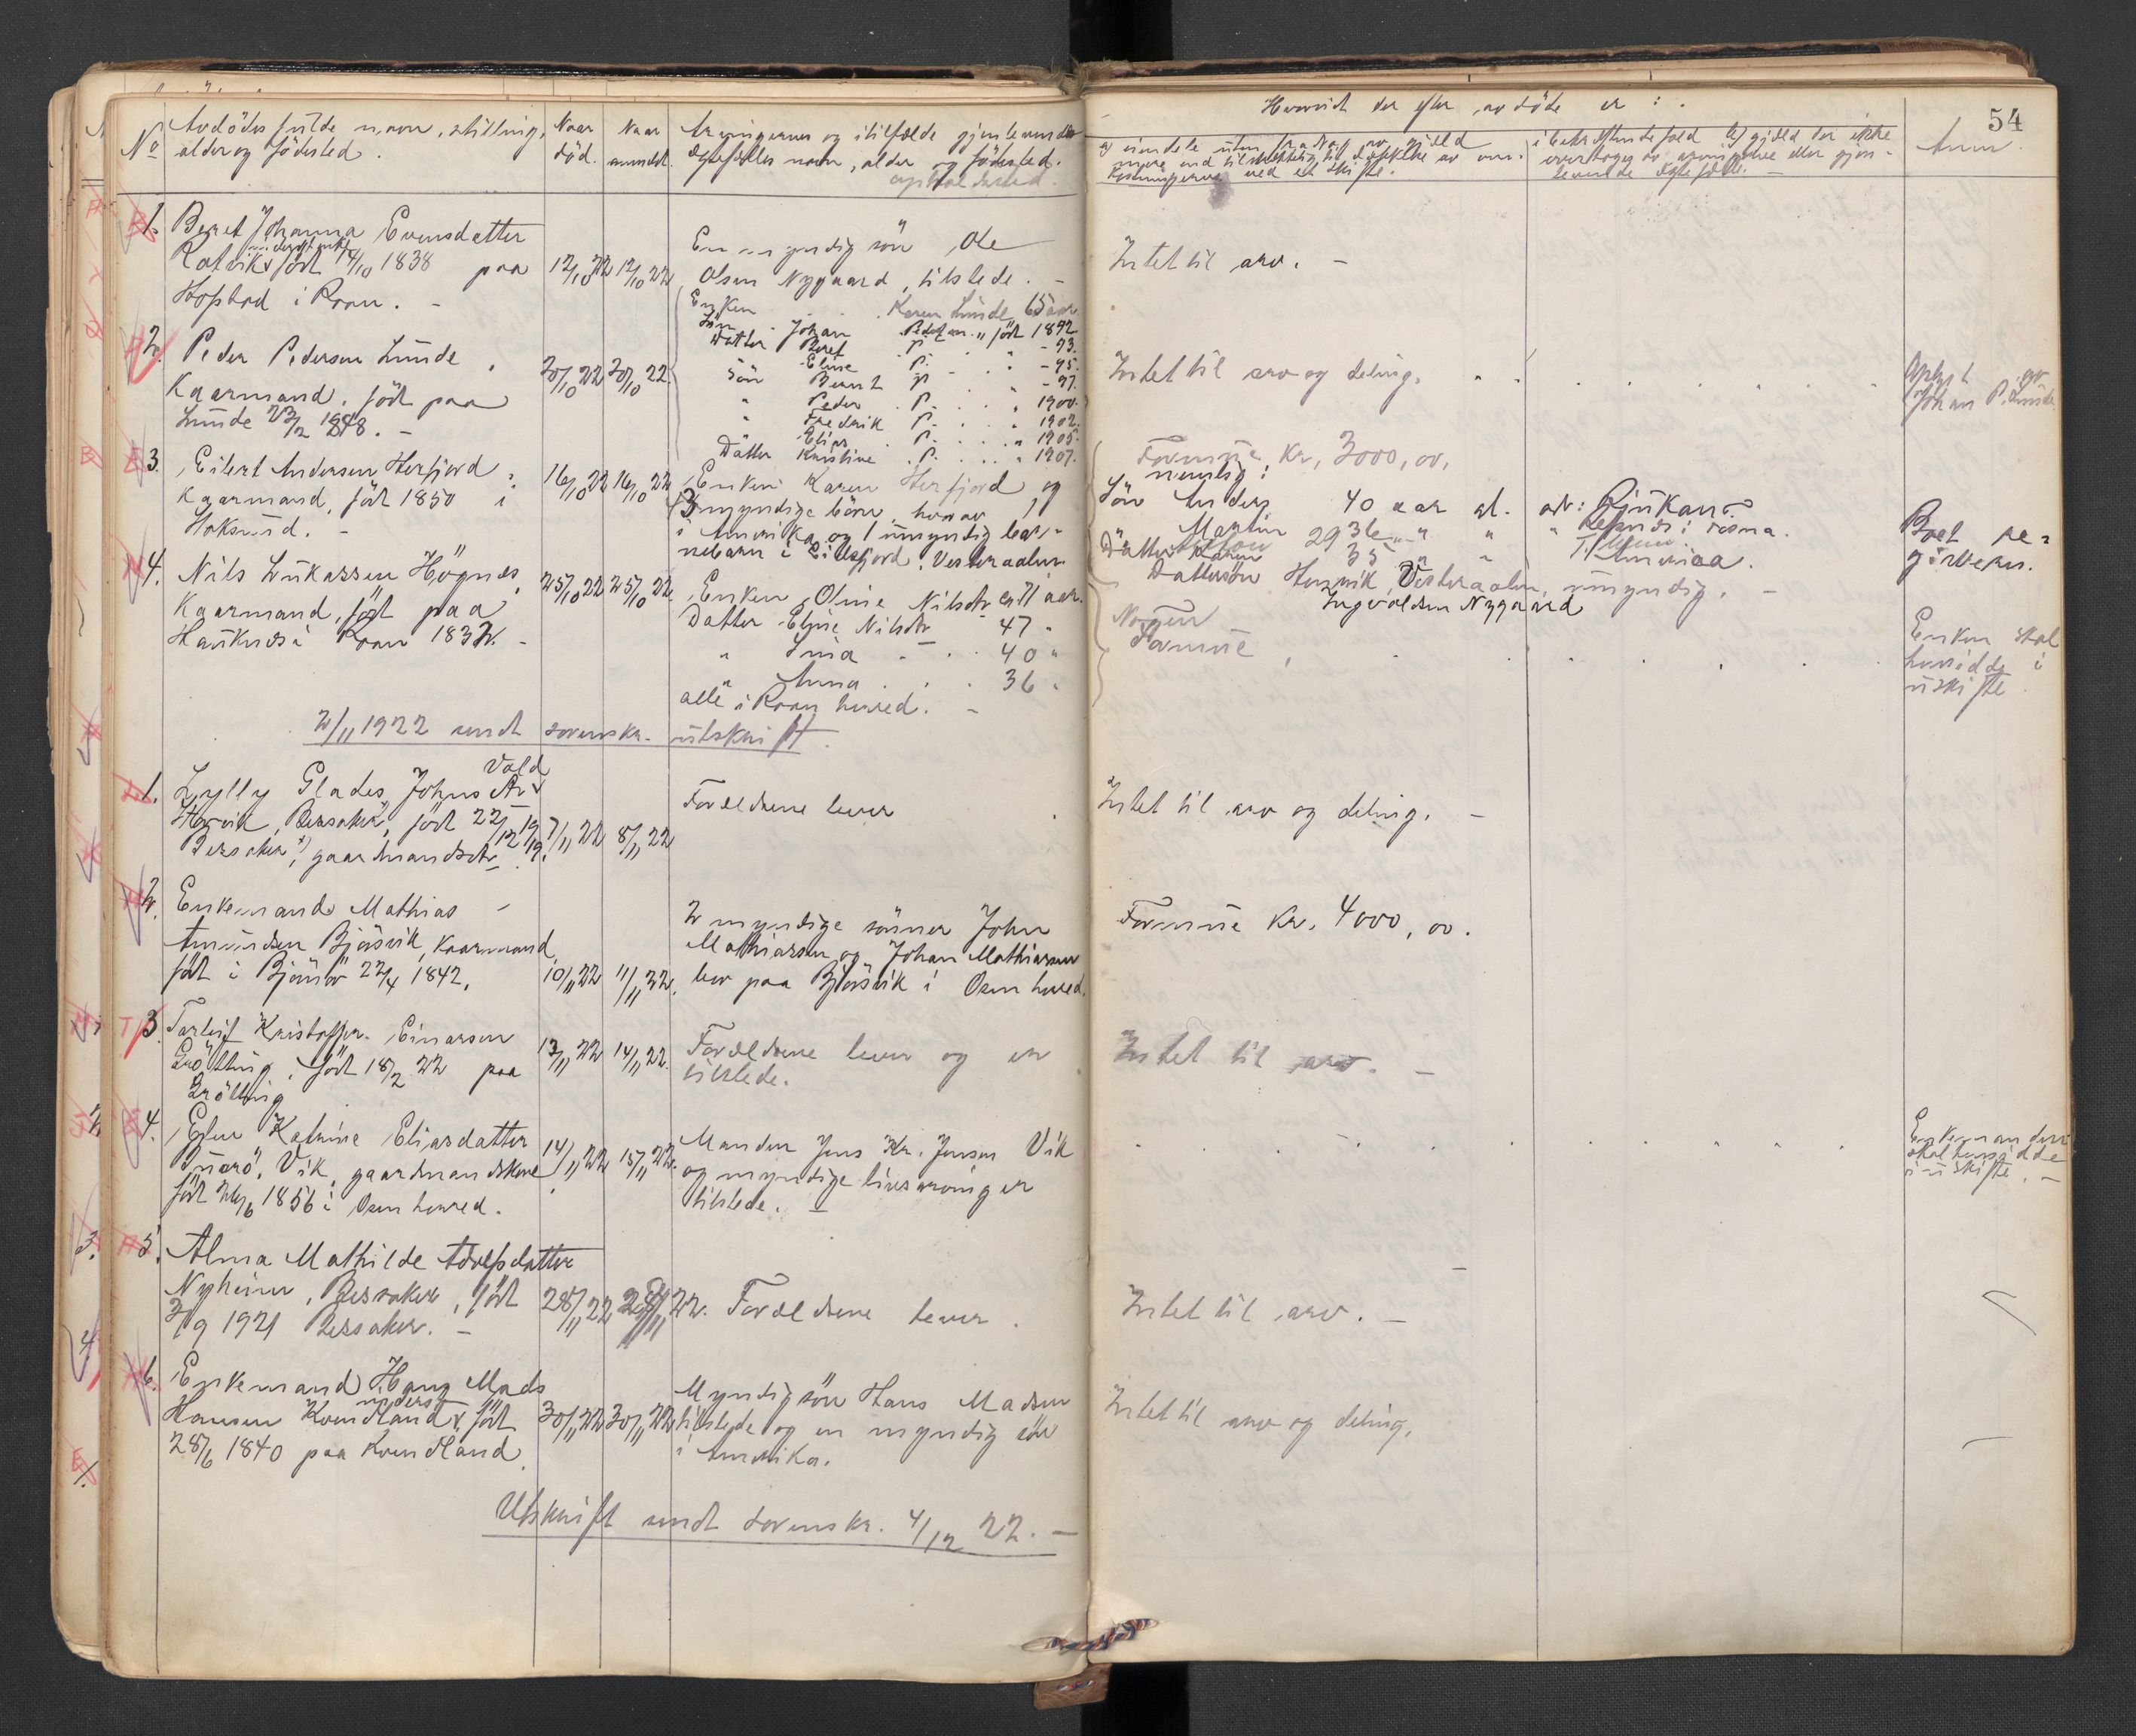 54
No
Avdödes fulde navn, stilling,
alder og födested.
Naar
död.
Naar
anmeldt.
Arvingernes og itilfælde gjenlevende
ægtefælles navn, alder og födested.
opholdssted.
Hvorvidt der efter avdöde er :
a) eiendele uten fradrag av gjæld
mere end tilstrækkelig til dækkelse av om-
kostningerne ved et skifte.
i bekræftende fald b) gjæld der ikke
overtages av arvingerne eller gjen-
levende ægtefælle. —
Anm.
1. Beret Johanna Evensdatter
Ratvik, födt 14/10 1838 paa
Hopstad i Roan. —
12/10 22 12/10 22
En myndig sön Ole
Olsen Nygaard, tilstede. —
Intet til arv. —
2. Peder Pedersen Lunde
Kaarmand, födt paa
Lunde 23/12 1848. —
30/10 22 30/10 22
Enken Karen Lunde 65 aar.
Sön Johan Pedersen " födt 1892
Datter Beret P. " - 93.
" Eline P. " - 95.
Sön Bernt P. " - 97.
" Peder P. " 1900.
" Fredrik P. " 1902.
" Elias P. " 1905.
Datter Kristine P. " 1907.
Intet til arv og deling.
Oplyst av
Johan P. Lunde
3. Eilert Andersen Herfjord
Kaarmand, födt 1850 i
Hoksund. —
16/10 22 16/10 22
Enken Karen Herfjord og
3 myndige börn, hvorav 1
i Amerika og 1 umyndig bar-
nebarn i Eidsfjord, Vesteraalen.
Formue kr. 3000,00,
nemlig:
Sön Anders 40 aar at. adr: Rjukan
" Martin 36 " "
Datter Karen 35 " " Amerika.
Dattersön Henrik, Vesteraalen, umyndig. —
Ingvaldsen Nygaard
Boet re-
gjörkes.
4. Nils Lukassen Högnes,
Kaarmand, födt paa
Hauknes i Roan 1837. —
25/10 22 25/10 22
Enken Oline Nilsdtr 71 aar.
Datter Eline Nilsdtr 47 "
" Inia " 40 "
" Anna " 36 "
alle i Roan herred. —
Nogen
Formue
Enken skal
hensidde i
uskifte.
2/11 1922 sendt sorenskr. utskrift.
1. Lylly Glades Johns Arv
Vold
Hopvik, Bessaker, födt 22/12 19
Bessaker, gaardmandsdtr.
7/11 22 8/11 22
Forældrene lever
Intet til arv og deling. —
2. Enkemand Mathias —
Amundsen Björsvik, Kaarmand,
födt i Björnör 22/4 1842.
10/11 22 11/11 22.
2 myndige sönner John
Mathiassen og Johan Mathiassen
lev paa Björsvik i Osen herred.
Formue kr. 4000,00.
3. Torleif Kristoffer Einarsen
Grötting, födt 18/2 22 paa
Grötting
13/11 22 14/11 22.
Forældrene lever og er
tilstede.
Intet til arv. —
4. Elen Katrine Eliasdatter
Vik, gaardmandskone
födt 24/6 1856 i Osen herred.
14/11 22 15/11 22.
Manden Jens Kr. Jensen Vik
og myndige livsarvinger
tilstede. —
Enkemanden
skal hensidde
i uskifte. —
5. Alma Mathilde Adolfsdatter
Nyheim, Bessaker, födt
3/9 1921 Bessaker. —
28/11 22 28/11 22.
Forældrene lever.
Intet til arv. —
6. Enkemand Hans Mads
Hansen Kvendland, födt
28/6 1840 paa Kvendland.
30/11 22 30/11 22
Myndig sön Hans Madsen
tilstede og en myndig sön
i Amerika.
Intet til arv og deling.
Utskrift sendt sorenskr. 4/12 22. —